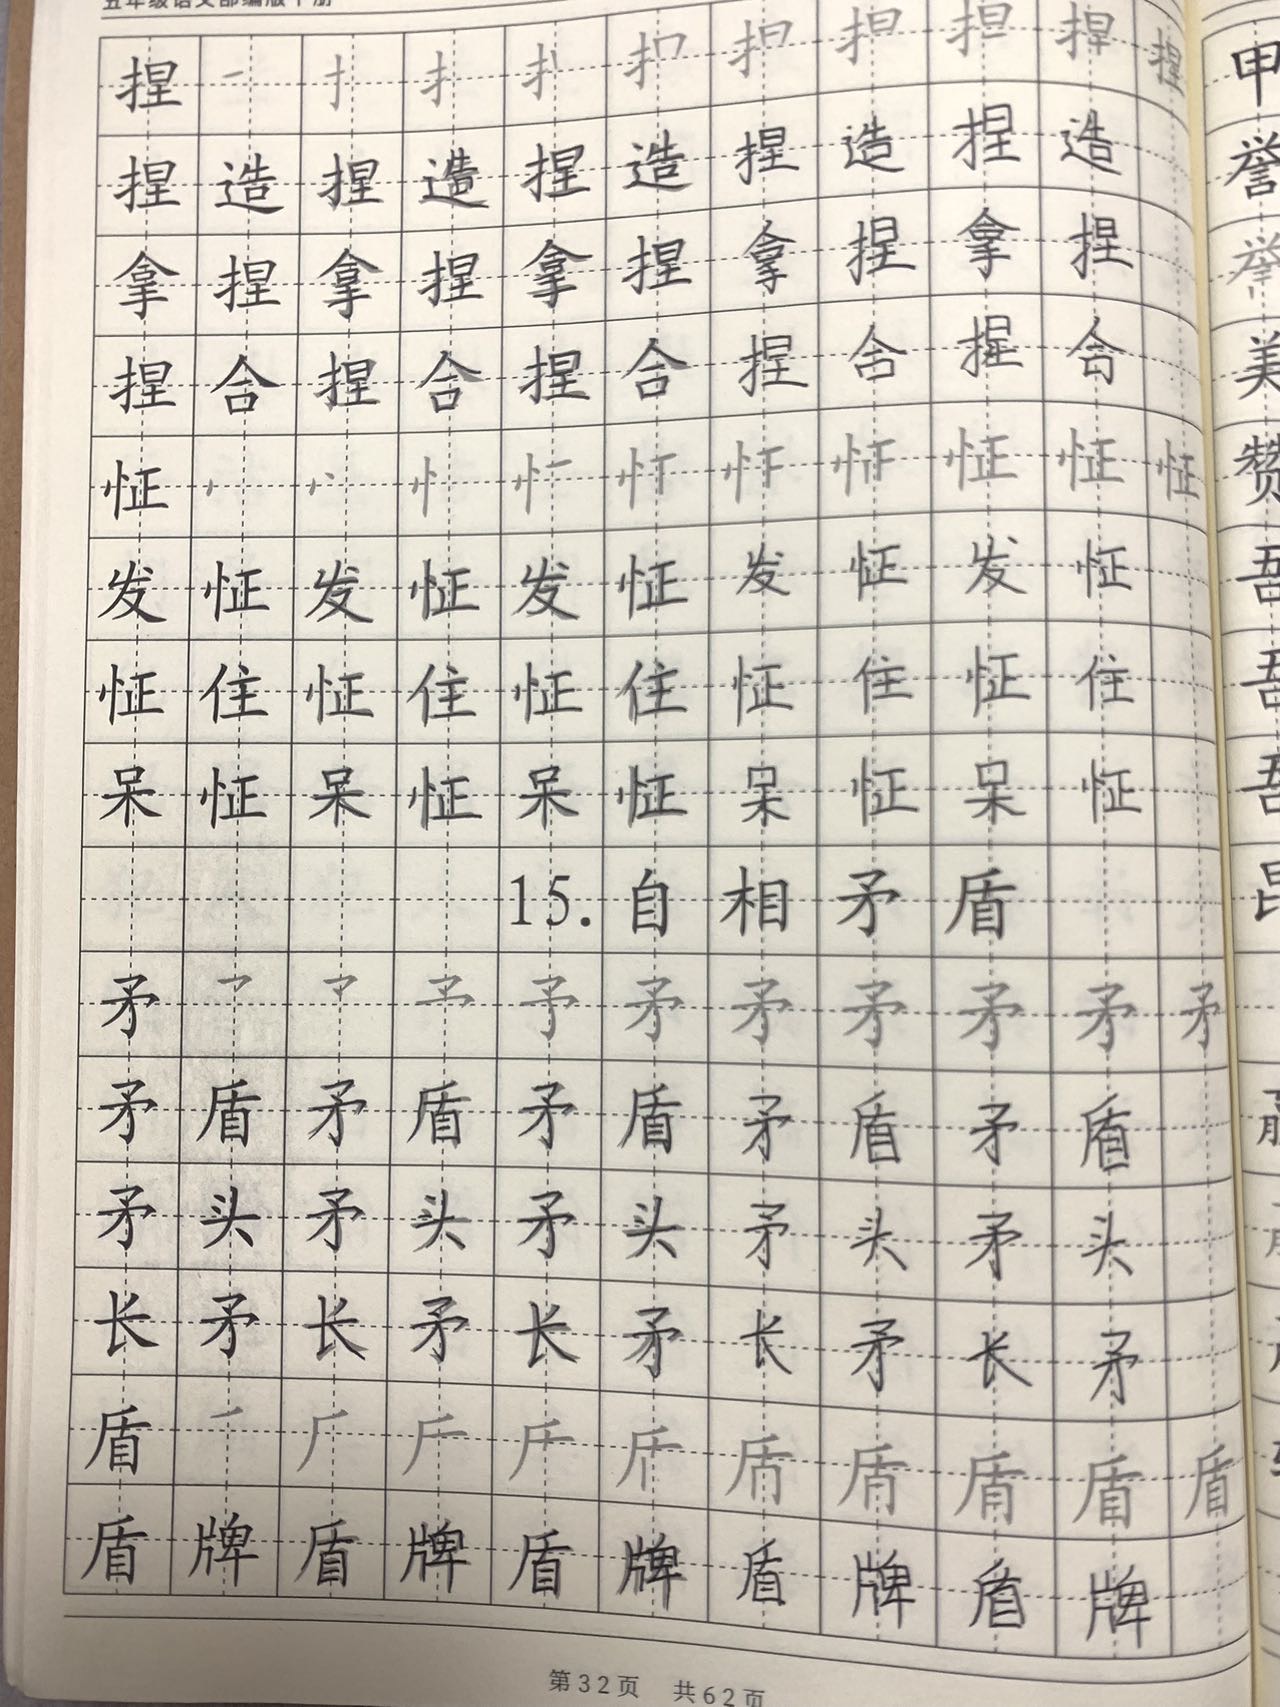 五年级语文部编版下册
捏 捏
捏 造 捏 造 捏 造 捏 造 捏 造
拿 捏 拿 捏 拿 捏 拿 捏 拿 捏
捏 合 捏 合 捏 合 捏 合 捏 合
怔 怔 怔 怔
发 怔 发 怔 发 怔 发 怔 发 怔
怔 住 怔 住 怔 住 怔 住 怔 住
呆 怔 呆 怔 呆 怔 呆 怔 呆 怔
15. 自相矛盾
矛 矛 矛 矛 矛 矛 矛
矛 盾 矛 盾 矛 盾 矛 盾 矛 盾
矛 头 矛 头 矛 头 矛 头 矛 头
长 矛 长 矛 长 矛 长 矛 长 矛
盾 盾 盾
盾 牌 盾 牌 盾 牌 盾 牌 盾 牌
第32页 共62页
甲
誉
美
赞
吾
吾
吾
昆